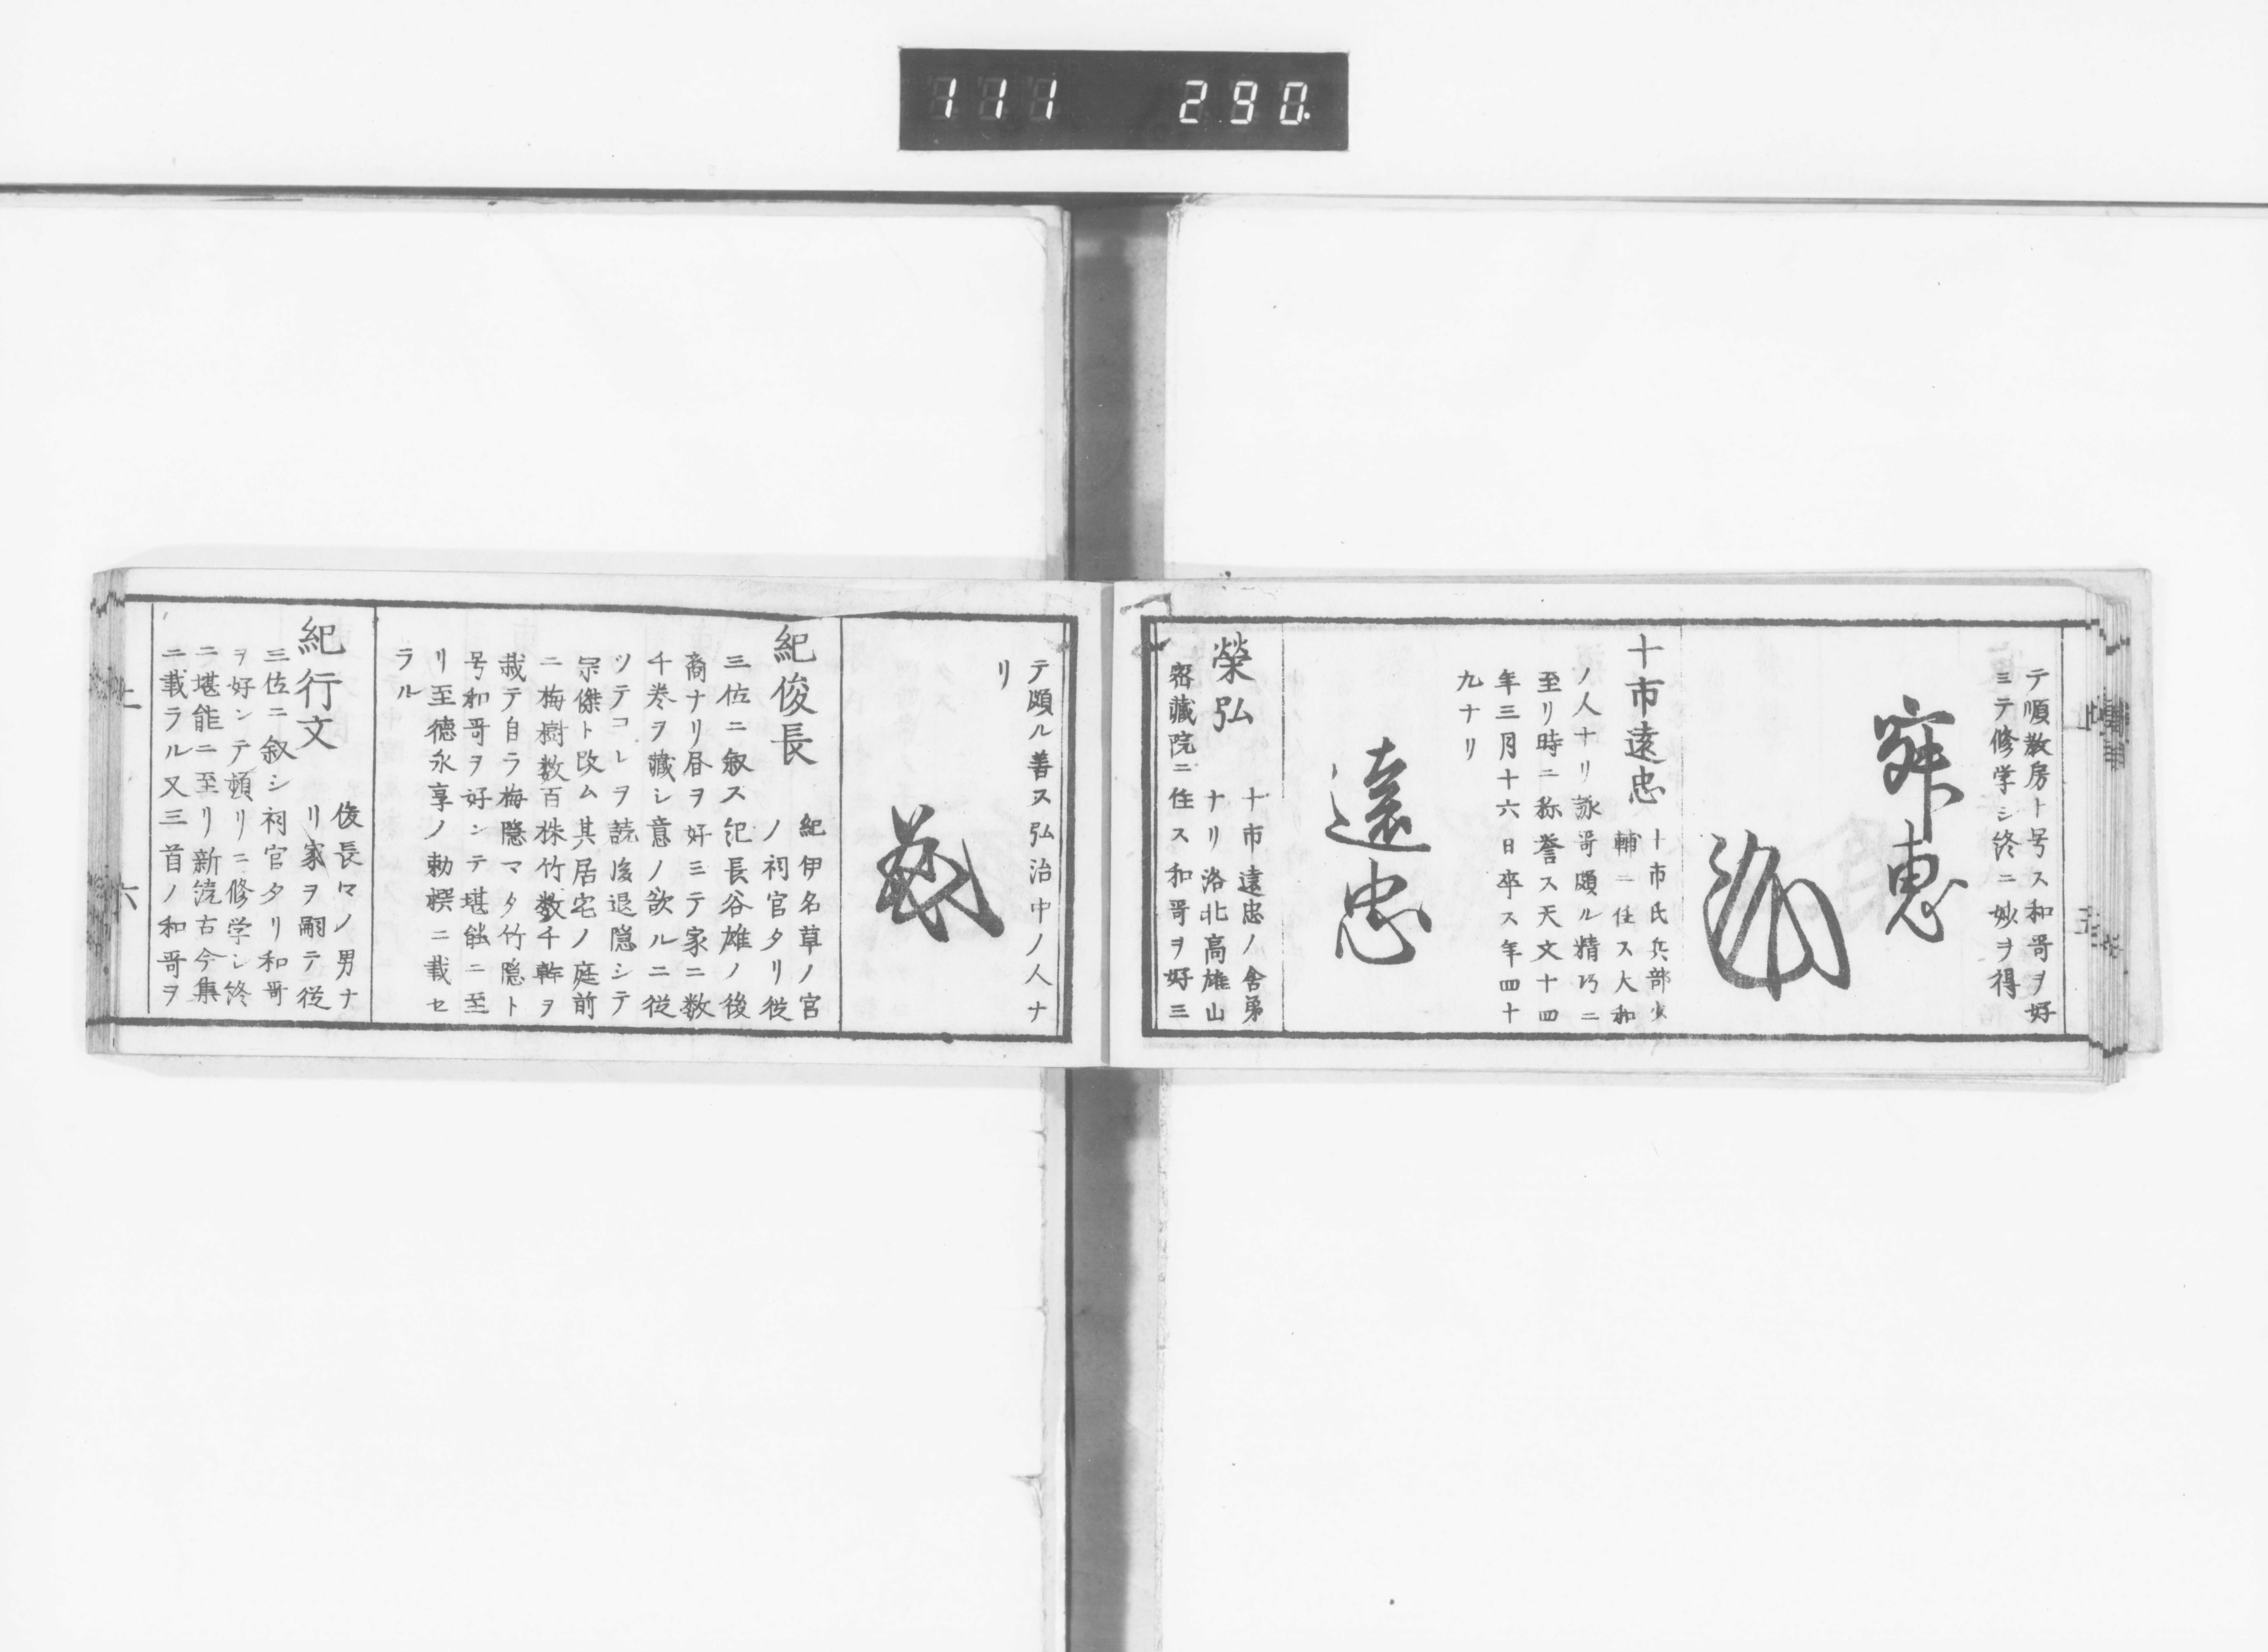 111 290.
テ順教房ト号ス和哥ヲ好
ミテ修学シ終ニ妙ヲ得
寂恵
十市遠忠
十市氏兵部少
輔ニ任ス大和
ノ人ナリ詠哥頗ル精巧ニ
至リ時ニ称誉ス天文十四
年三月十六日卒ス年四十
九ナリ
遠忠
榮弘
十市遠忠ノ舎弟
ナリ洛北高雄山
密藏院ニ住ス和哥ヲ好三
テ頗ル善ス弘治中ノ人ナ
リ
紀俊長
紀伊名草ノ官
ノ祠官タリ従
三位ニ叙ス紀長谷雄ノ後
裔ナリ昼ヲ好ミテ家ニ数
千巻ヲ藏シ意ノ欲ルニ従
ツテコレヲ読後退隠シテ
宗傑ト改ム其居宅ノ庭前
ニ梅樹数百株竹数千幹ヲ
栽テ自ラ梅隠マタ竹隠ト
号和哥ヲ好ンテ堪能ニ至
リ至徳永享ノ勅撰ニ載セ
ラル
紀行文
俊長マノ男ナ
リ家ヲ嗣テ従
三位ニ叙シ祠官タリ和哥
ヲ好ンテ頻リニ修学シ終
ニ堪能ニ至リ新続古今集
ニ載ラル又三首ノ和哥ヲ
上 六